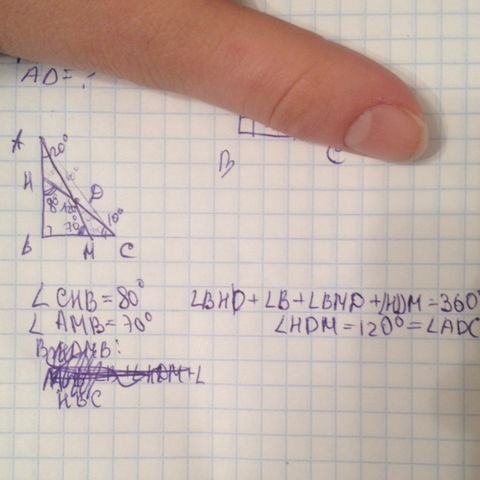 AD = ?
A
20°
H
D
80°
120°
10°
70°
B
M
C
B
C
∠CHB = 80°
∠AMB = 70°
∠BHD + ∠B + ∠BMD + ∠HDM = 360°
∠HDM = 120° = ∠ADC
HBC